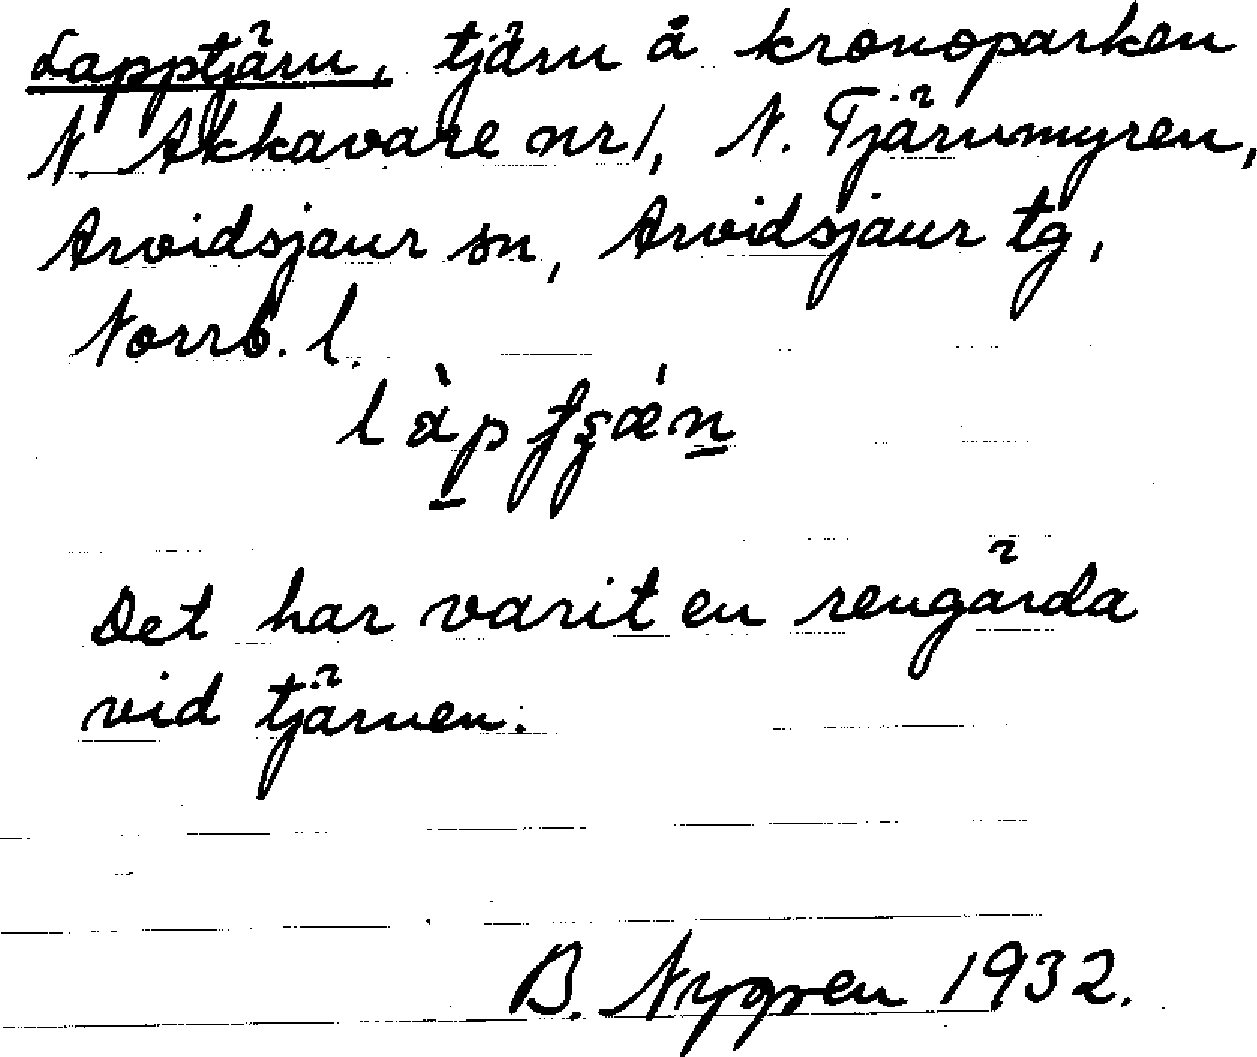 Lapptjärn, tjärn å kronoparken
N. Akkavare nr 1, N. Tjärnmyren,
Arvidsjaur sn, Arvidsjaur tg,
Norrb. l.
Det har varit en rengärda
vid tjärnen.
B. Nygren 1932.